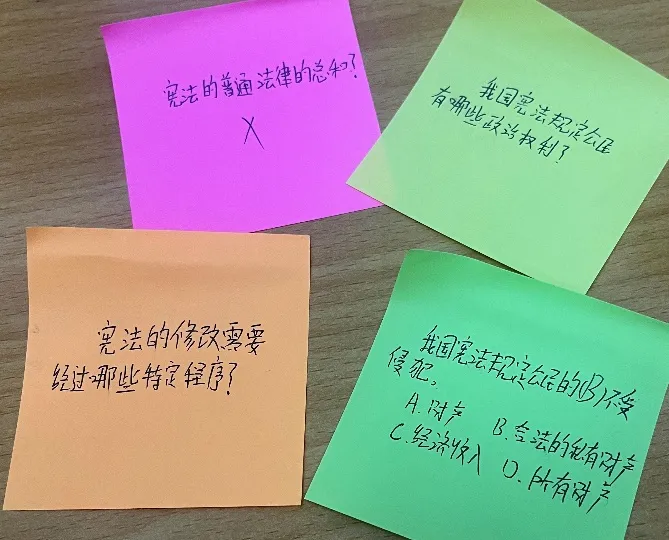 宪法的普通法律的总和？
X
我国宪法规定公民
有哪些政治权利？
宪法的修改需要
经过哪些特定程序？
我国宪法规定公民的(B)不受
侵犯。
A.财产
B.合法的私有财产
C.经济收入
D.所有财产